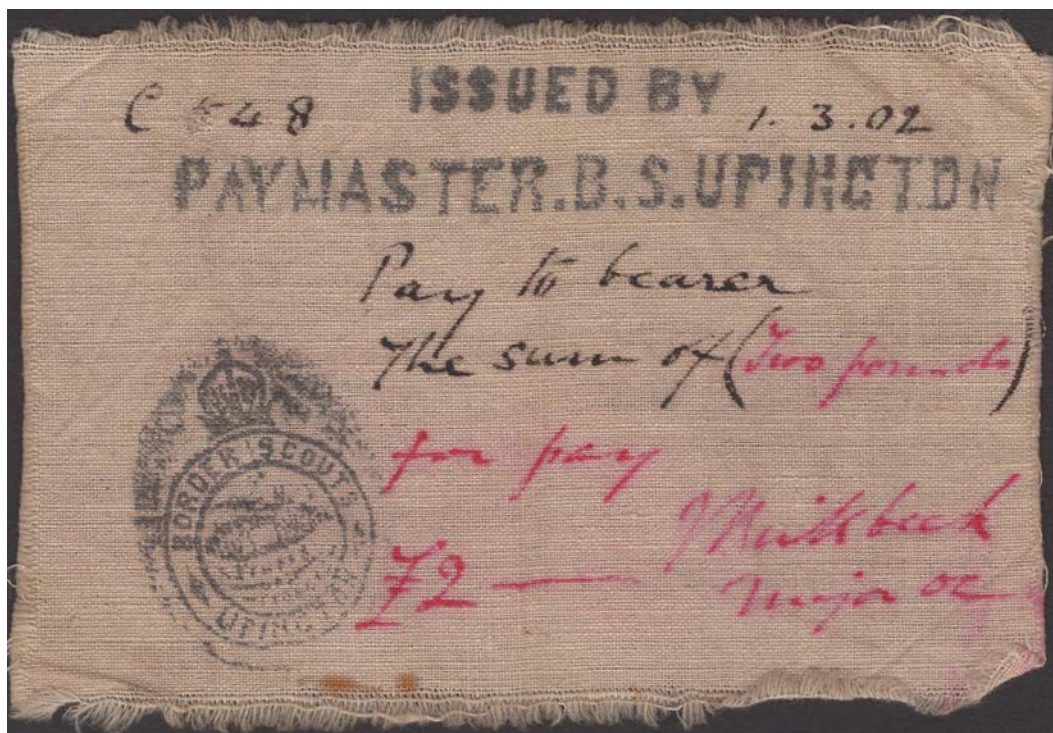 ISSUED BY
C 548 1.3.02
PAYMASTER.B.S.UPINGTON
Pay to bearer
The sum of (Two pounds)
for pay
£2 —
Major OC
BORDER SCOUTS
UPINGTON